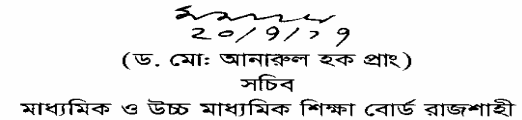 ২০/৭/১৭
(ড. মোঃ আনারুল হক প্রাং)
সচিব
মাধ্যমিক ও উচ্চ মাধ্যমিক শিক্ষা বোর্ড রাজশাহী